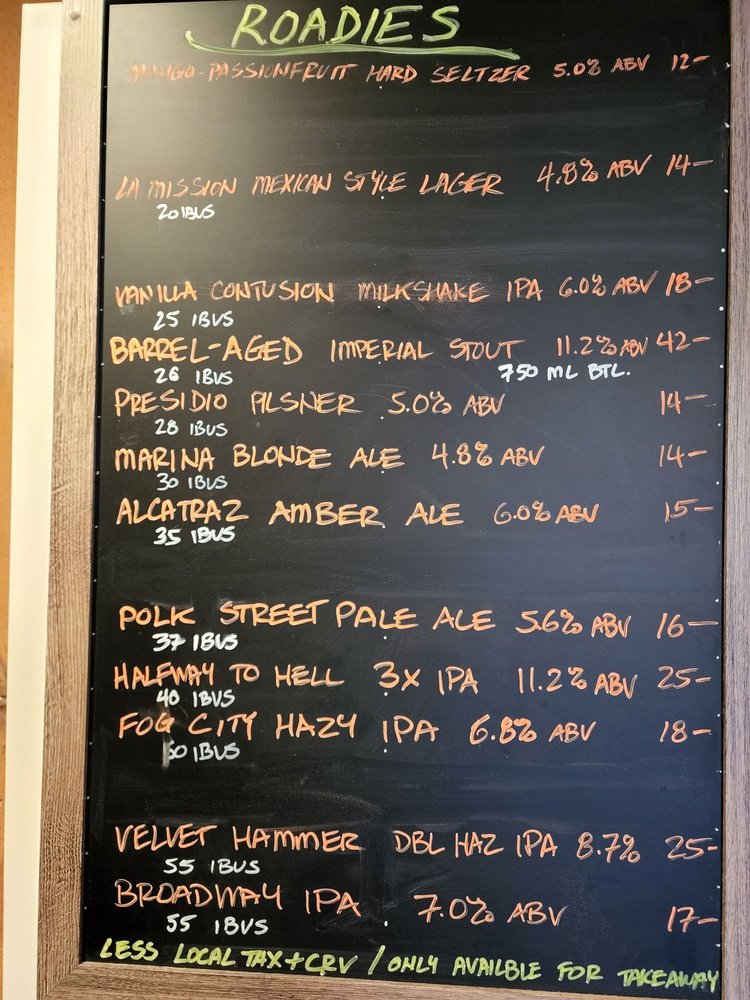 ROADIES
MANGO-PASSIONFRUIT HARD SELTZER 5.0% ABV 12-
LA MISSION MEXICAN STYLE LAGER 4.8% ABV 14-
20 IBUS
VANILLA CONTUSION MILKSHAKE IPA 6.0% ABV 18-
25 IBUS
BARREL-AGED IMPERIAL STOUT 11.2% ABV 42-
26 IBUS 750 ML BTL.
PRESIDIO PILSNER 5.0% ABV 14-
28 IBUS
MARINA BLONDE ALE 4.8% ABV 14-
30 IBUS
ALCATRAZ AMBER ALE 6.0% ABV 15-
35 IBUS
POLK STREET PALE ALE 5.6% ABV 16-
37 IBUS
HALFWAY TO HELL 3X IPA 11.2% ABV 25-
40 IBUS
FOG CITY HAZY IPA 6.8% ABV 18-
50 IBUS
VELVET HAMMER DBL HAZ IPA 8.7% 25-
55 IBUS
BROADWAY IPA 7.0% ABV 17-
55 IBUS
LESS LOCAL TAX+CRV / ONLY AVAILBLE FOR TAKEAWAY